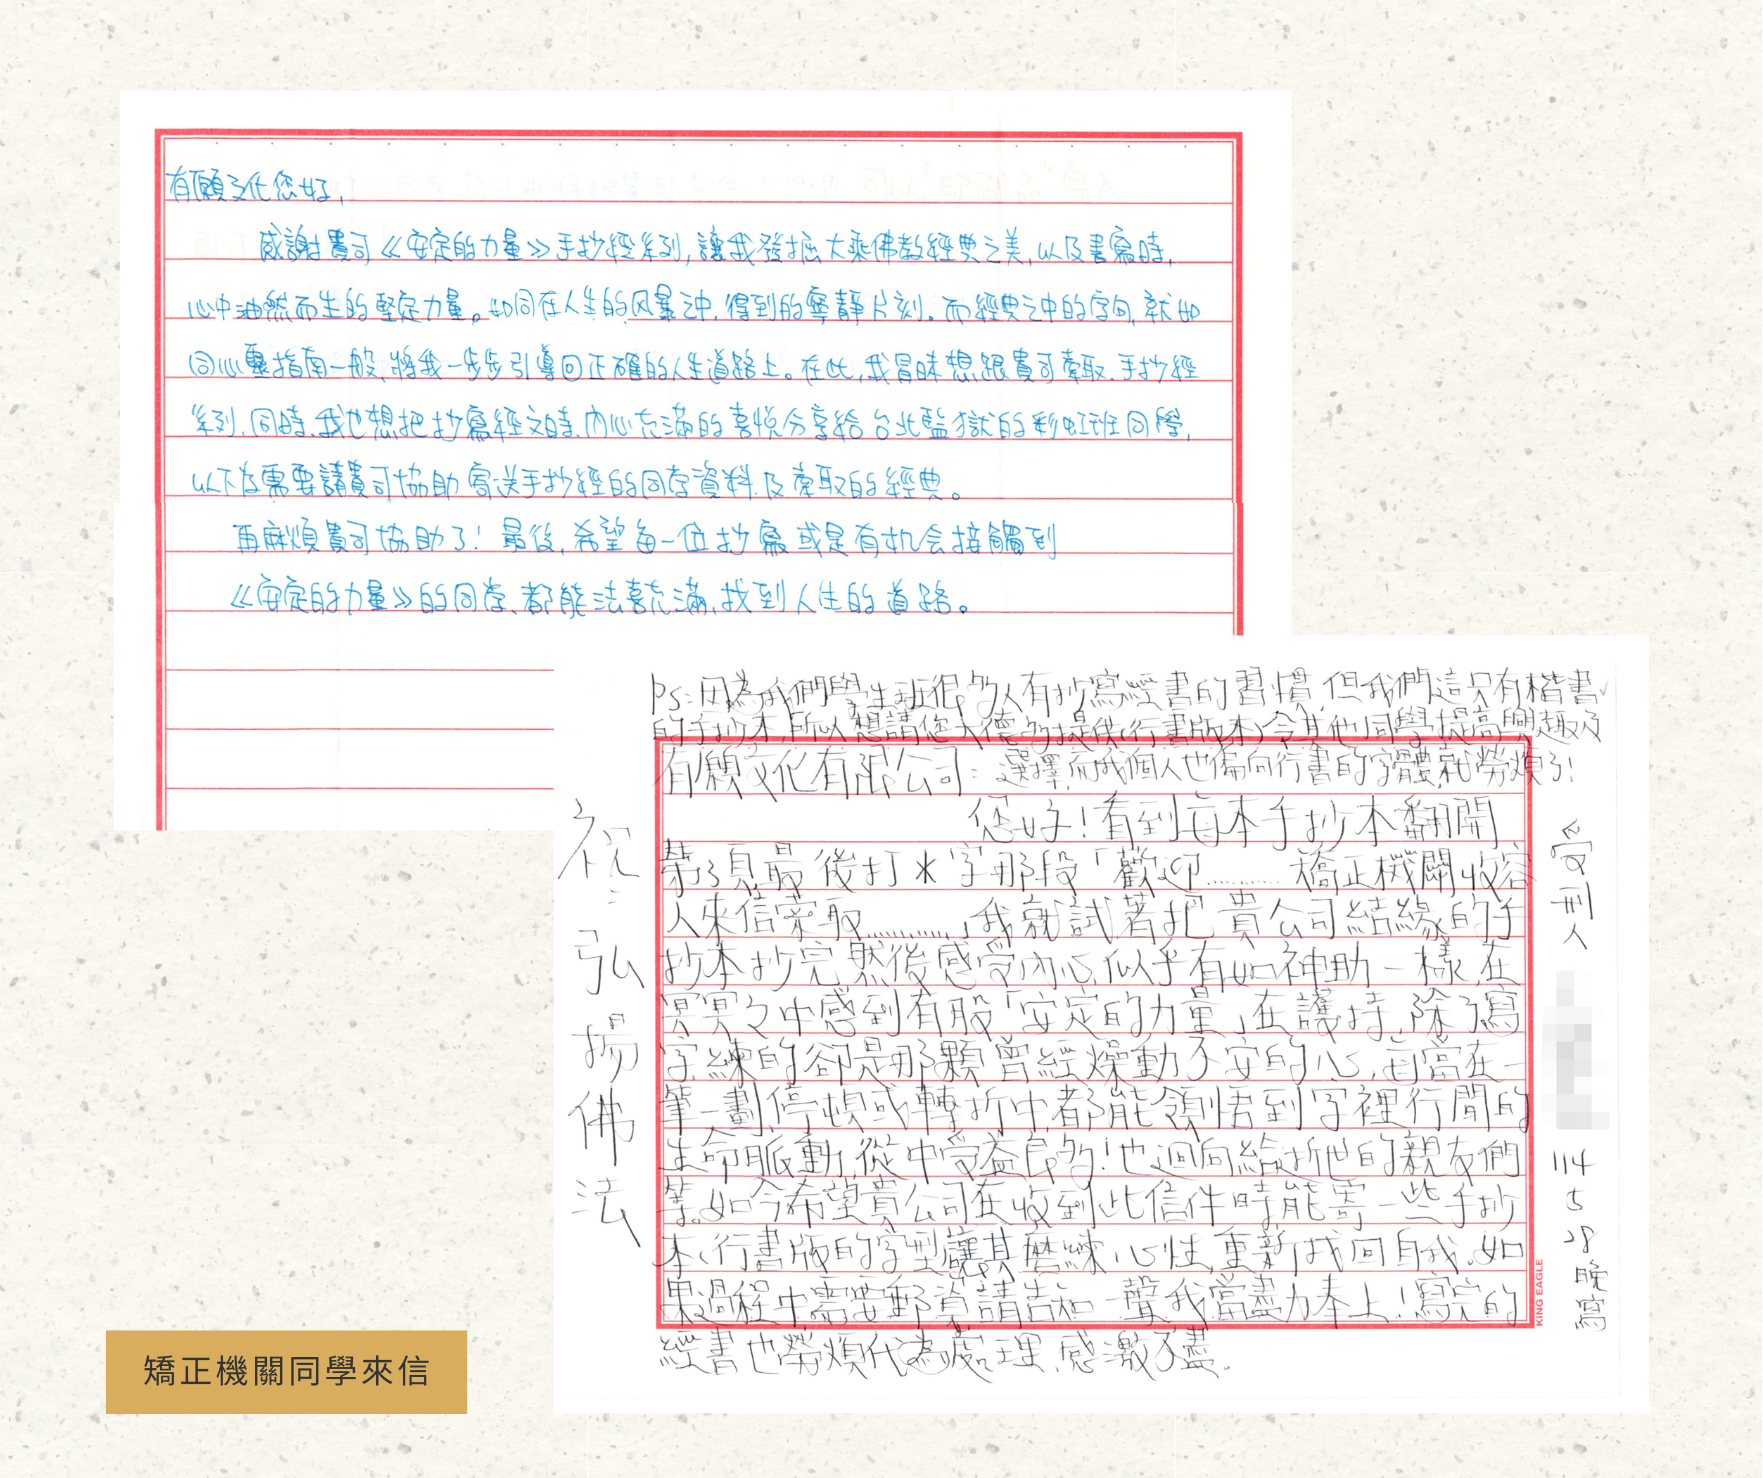 有願文化您好,
感謝貴司《安定的力量》手抄經系列,讓我發掘大乘佛教經典之美,以及書寫時,
心中油然而生的堅定力量。如同在人生的风暴之中,得到的寧靜片刻。而經典之中的字句,就如
同心靈指南一般,將我一步步引導回正確的人生道路上。在此,我冒昧想跟貴司索取,手抄經
系列,同時,我也想把抄寫經文時,內心充滿的喜悅分享給台北監獄的彩虹班同學,
以下為需要請貴司協助寄送手抄經的同学資料及索取的經典。
再麻煩貴司協助了!最後,希望每一位抄寫或是有机会接觸到
《安定的力量》的同学,都能法喜充滿,找到人生的道路。
PS:因為我們學生班很多人有抄寫經書的習慣,但我們這只有楷書
的手抄本,所以想請您大德多提供(行書版本)令其他同學提高興趣及
選擇,而我個人也偏向行書的字體,就勞煩了!
有願文化有限公司:
您好!看到每本手抄本翻開
第3頁最後打*字那段「歡迎………矯正機關收容
人來信索取…………」我就試著把貴公司結緣的手
抄本抄完,然後感受內心,似乎有如神助一樣,在
冥冥之中感到有股「安定的力量」在護持,除了寫
字,練的卻是那顆曾經燥動不安的心,每當在一
筆一劃,停頓或轉折中,都能領悟到字裡行間的
生命脈動,從中受益良多!也迴向給其他的親友們
等。如今希望貴公司在收到此信件時能寄一些手抄
本(行書版的字型)讓其磨練心性,重新找回自我。如
果過程中需要郵資請告知一聲,我當盡力奉上!寫完的
經書也勞煩代為處理,感激不盡.
祝:弘揚佛法
受刑人
114
5
28
晚
寫
KING EAGLE
矯正機關同學來信